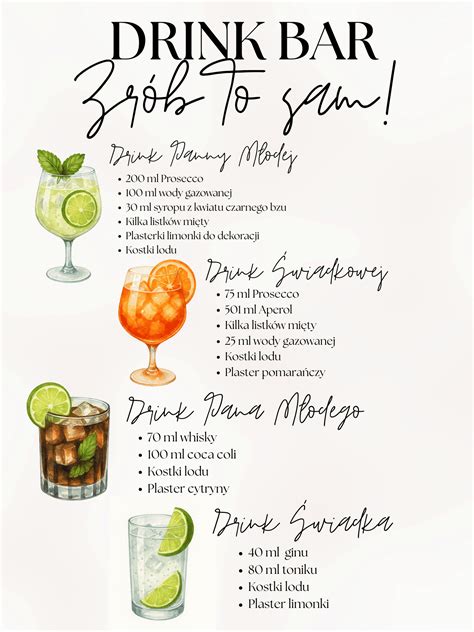 DRINK BAR
Zrób to sam!
Drink Panny Młodej
• 200 ml Prosecco
• 100 ml wody gazowanej
• 30 ml syropu z kwiatu czarnego bzu
• Kilka listków mięty
• Plasterki limonki do dekoracji
• Kostki lodu
Drink Świadkowej
• 75 ml Prosecco
• 501 ml Aperol
• Kilka listków mięty
• 25 ml wody gazowanej
• Kostki lodu
• Plaster pomarańczy
Drink Pana Młodego
• 70 ml whisky
• 100 ml coca coli
• Kostki lodu
• Plaster cytryny
Drink Świadka
• 40 ml ginu
• 80 ml toniku
• Kostki lodu
• Plaster limonki